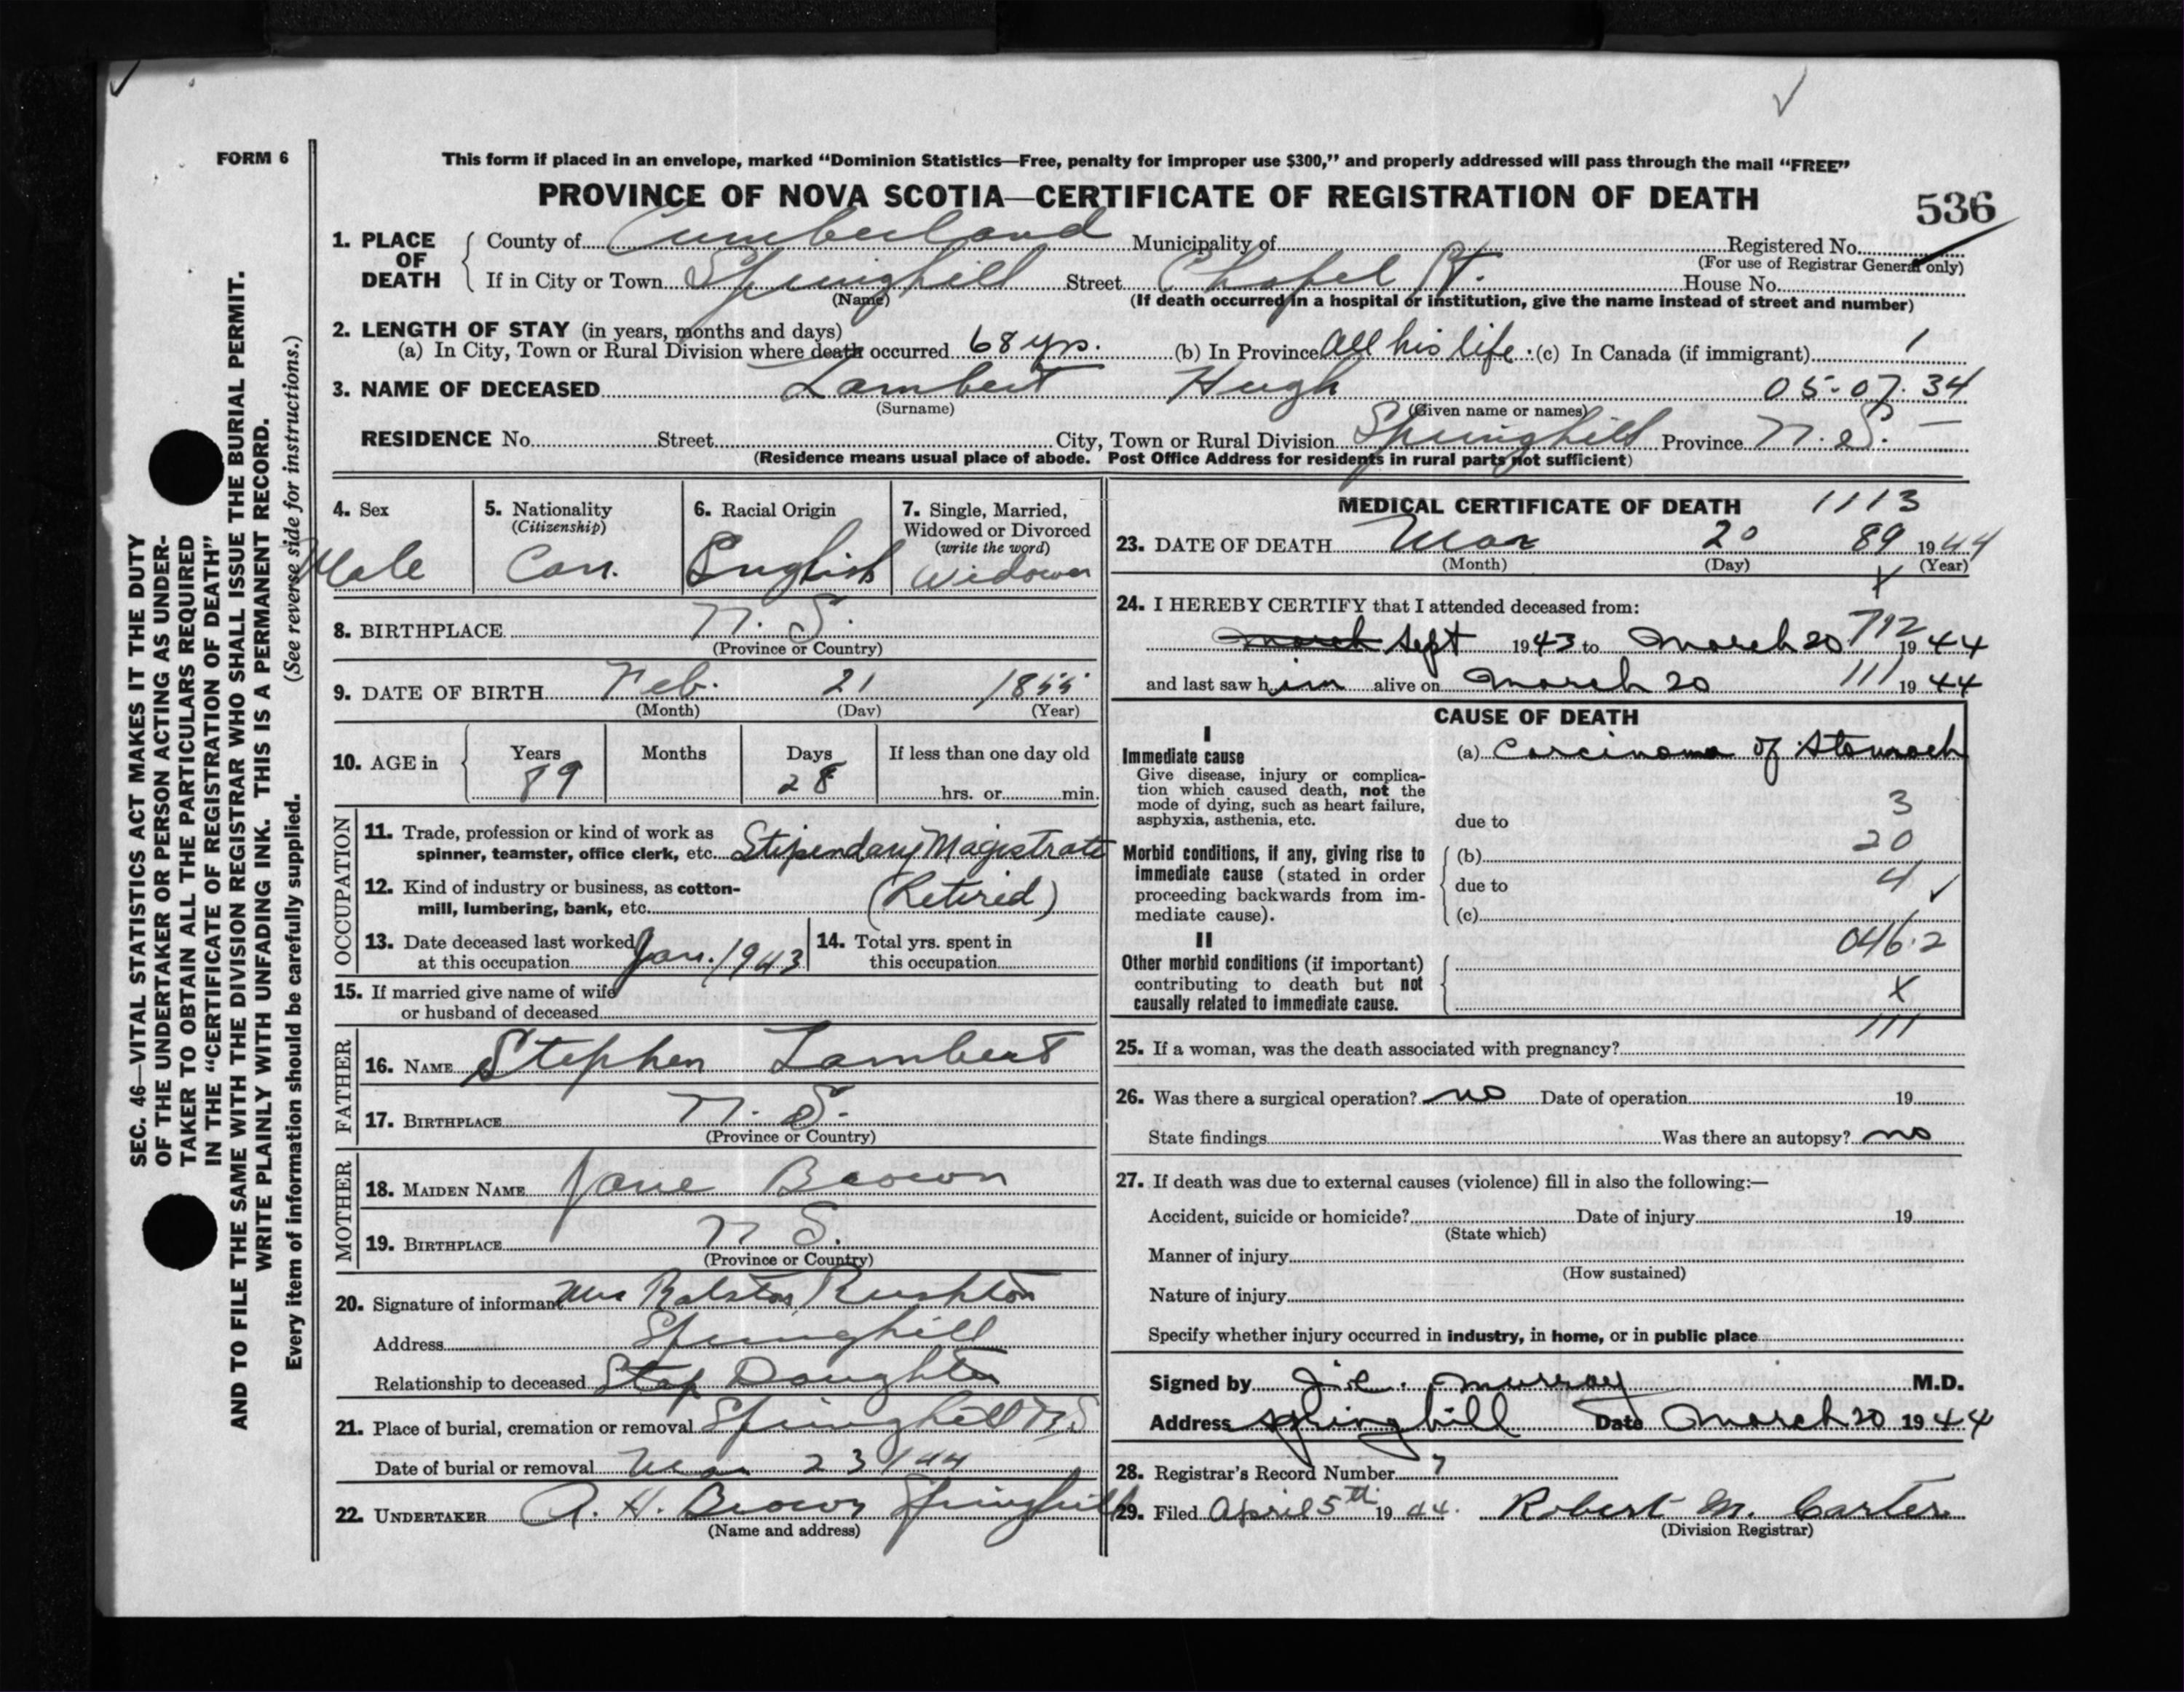 FORM 6
This form if placed in an envelope, marked “Dominion Statistics—Free, penalty for improper use $300,” and properly addressed will pass through the mail “FREE”
PROVINCE OF NOVA SCOTIA—CERTIFICATE OF REGISTRATION OF DEATH
536
1. PLACE OF DEATH
County of Cumberland Municipality of Registered No.
(For use of Registrar General only)
If in City or Town Springhill Street Chapel St. House No.
(Name) (If death occurred in a hospital or institution, give the name instead of street and number)
2. LENGTH OF STAY (in years, months and days)
(a) In City, Town or Rural Division where death occurred 68 yrs. (b) In Province All his life. (c) In Canada (if immigrant) 1
3. NAME OF DECEASED Lambert Hugh 05-07.34
(Surname) (Given name or names)
RESIDENCE No. Street City, Town or Rural Division Springhill Province N.S. —
(Residence means usual place of abode. Post Office Address for residents in rural parts not sufficient)
4. Sex
Male
5. Nationality
(Citizenship)
Can.
6. Racial Origin
English
7. Single, Married,
Widowed or Divorced
(write the word)
Widower
8. BIRTHPLACE N. S.
(Province or Country)
9. DATE OF BIRTH Feb. 21 1855
(Month) (Day) (Year)
10. AGE in
Years Months Days If less than one day old
89 28 hrs. or min.
OCCUPATION
11. Trade, profession or kind of work as
spinner, teamster, office clerk, etc. Stipendary Magistrate
12. Kind of industry or business, as cotton-
mill, lumbering, bank, etc. (Retired)
13. Date deceased last worked
at this occupation Jan. 1943
14. Total yrs. spent in
this occupation
15. If married give name of wife
or husband of deceased
FATHER
16. NAME Stephen Lambert
17. BIRTHPLACE N. S.
(Province or Country)
MOTHER
18. MAIDEN NAME Jane Brown
19. BIRTHPLACE N S.
(Province or Country)
20. Signature of informant Mrs Ralston Rushton
Address Springhill
Relationship to deceased Step Daughter
21. Place of burial, cremation or removal Springhill N.S
Date of burial or removal Mar 23/44
22. UNDERTAKER A. H. Brown Springhill
(Name and address)
MEDICAL CERTIFICATE OF DEATH 1113
23. DATE OF DEATH Mar 20 89 1944
(Month) (Day) (Year)
X
24. I HEREBY CERTIFY that I attended deceased from:
712
march Sept 1943 to March 20 1944
and last saw him alive on March 20 111 1944
CAUSE OF DEATH
I
Immediate cause
Give disease, injury or complica-
tion which caused death, not the
mode of dying, such as heart failure,
asphyxia, asthenia, etc.
(a) Carcinoma of Stomach
3
due to
20
Morbid conditions, if any, giving rise to
immediate cause (stated in order
proceeding backwards from im-
mediate cause).
(b)
due to 4
(c)
II
046.2
Other morbid conditions (if important)
contributing to death but not
causally related to immediate cause.
X
111
25. If a woman, was the death associated with pregnancy?
26. Was there a surgical operation? no Date of operation 19
State findings Was there an autopsy? no
27. If death was due to external causes (violence) fill in also the following:—
Accident, suicide or homicide? Date of injury 19
(State which)
Manner of injury
(How sustained)
Nature of injury
Specify whether injury occurred in industry, in home, or in public place
Signed by Murray M.D.
Address Springhill Date March 20 1944
28. Registrar's Record Number 7
29. Filed April 5th 1944. Robert M. Carter
(Division Registrar)
SEC. 46—VITAL STATISTICS ACT MAKES IT THE DUTY
OF THE UNDERTAKER OR PERSON ACTING AS UNDER-
TAKER TO OBTAIN ALL THE PARTICULARS REQUIRED
IN THE “CERTIFICATE OF REGISTRATION OF DEATH”
AND TO FILE THE SAME WITH THE DIVISION REGISTRAR WHO SHALL ISSUE THE BURIAL PERMIT.
WRITE PLAINLY WITH UNFADING INK. THIS IS A PERMANENT RECORD.
Every item of information should be carefully supplied. (See reverse side for instructions.)